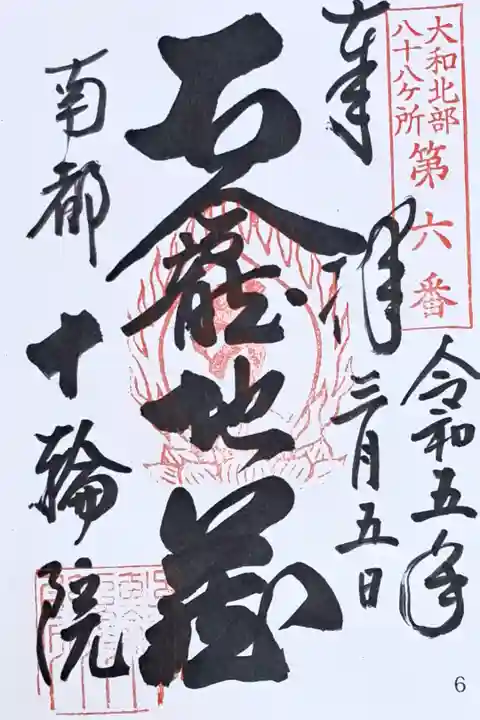 大和北部
八十八ケ所
第六番
奉拝
令和五年
三月五日
石龕地蔵
南都 十輪院
6